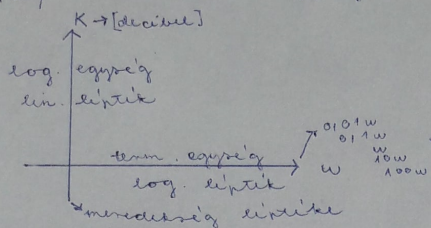 K → [decibel]
log. egység
lin. léptik
term. egység
log. léptik
0,01w
0,1w
w
10w
100w
w
meredekség léptike